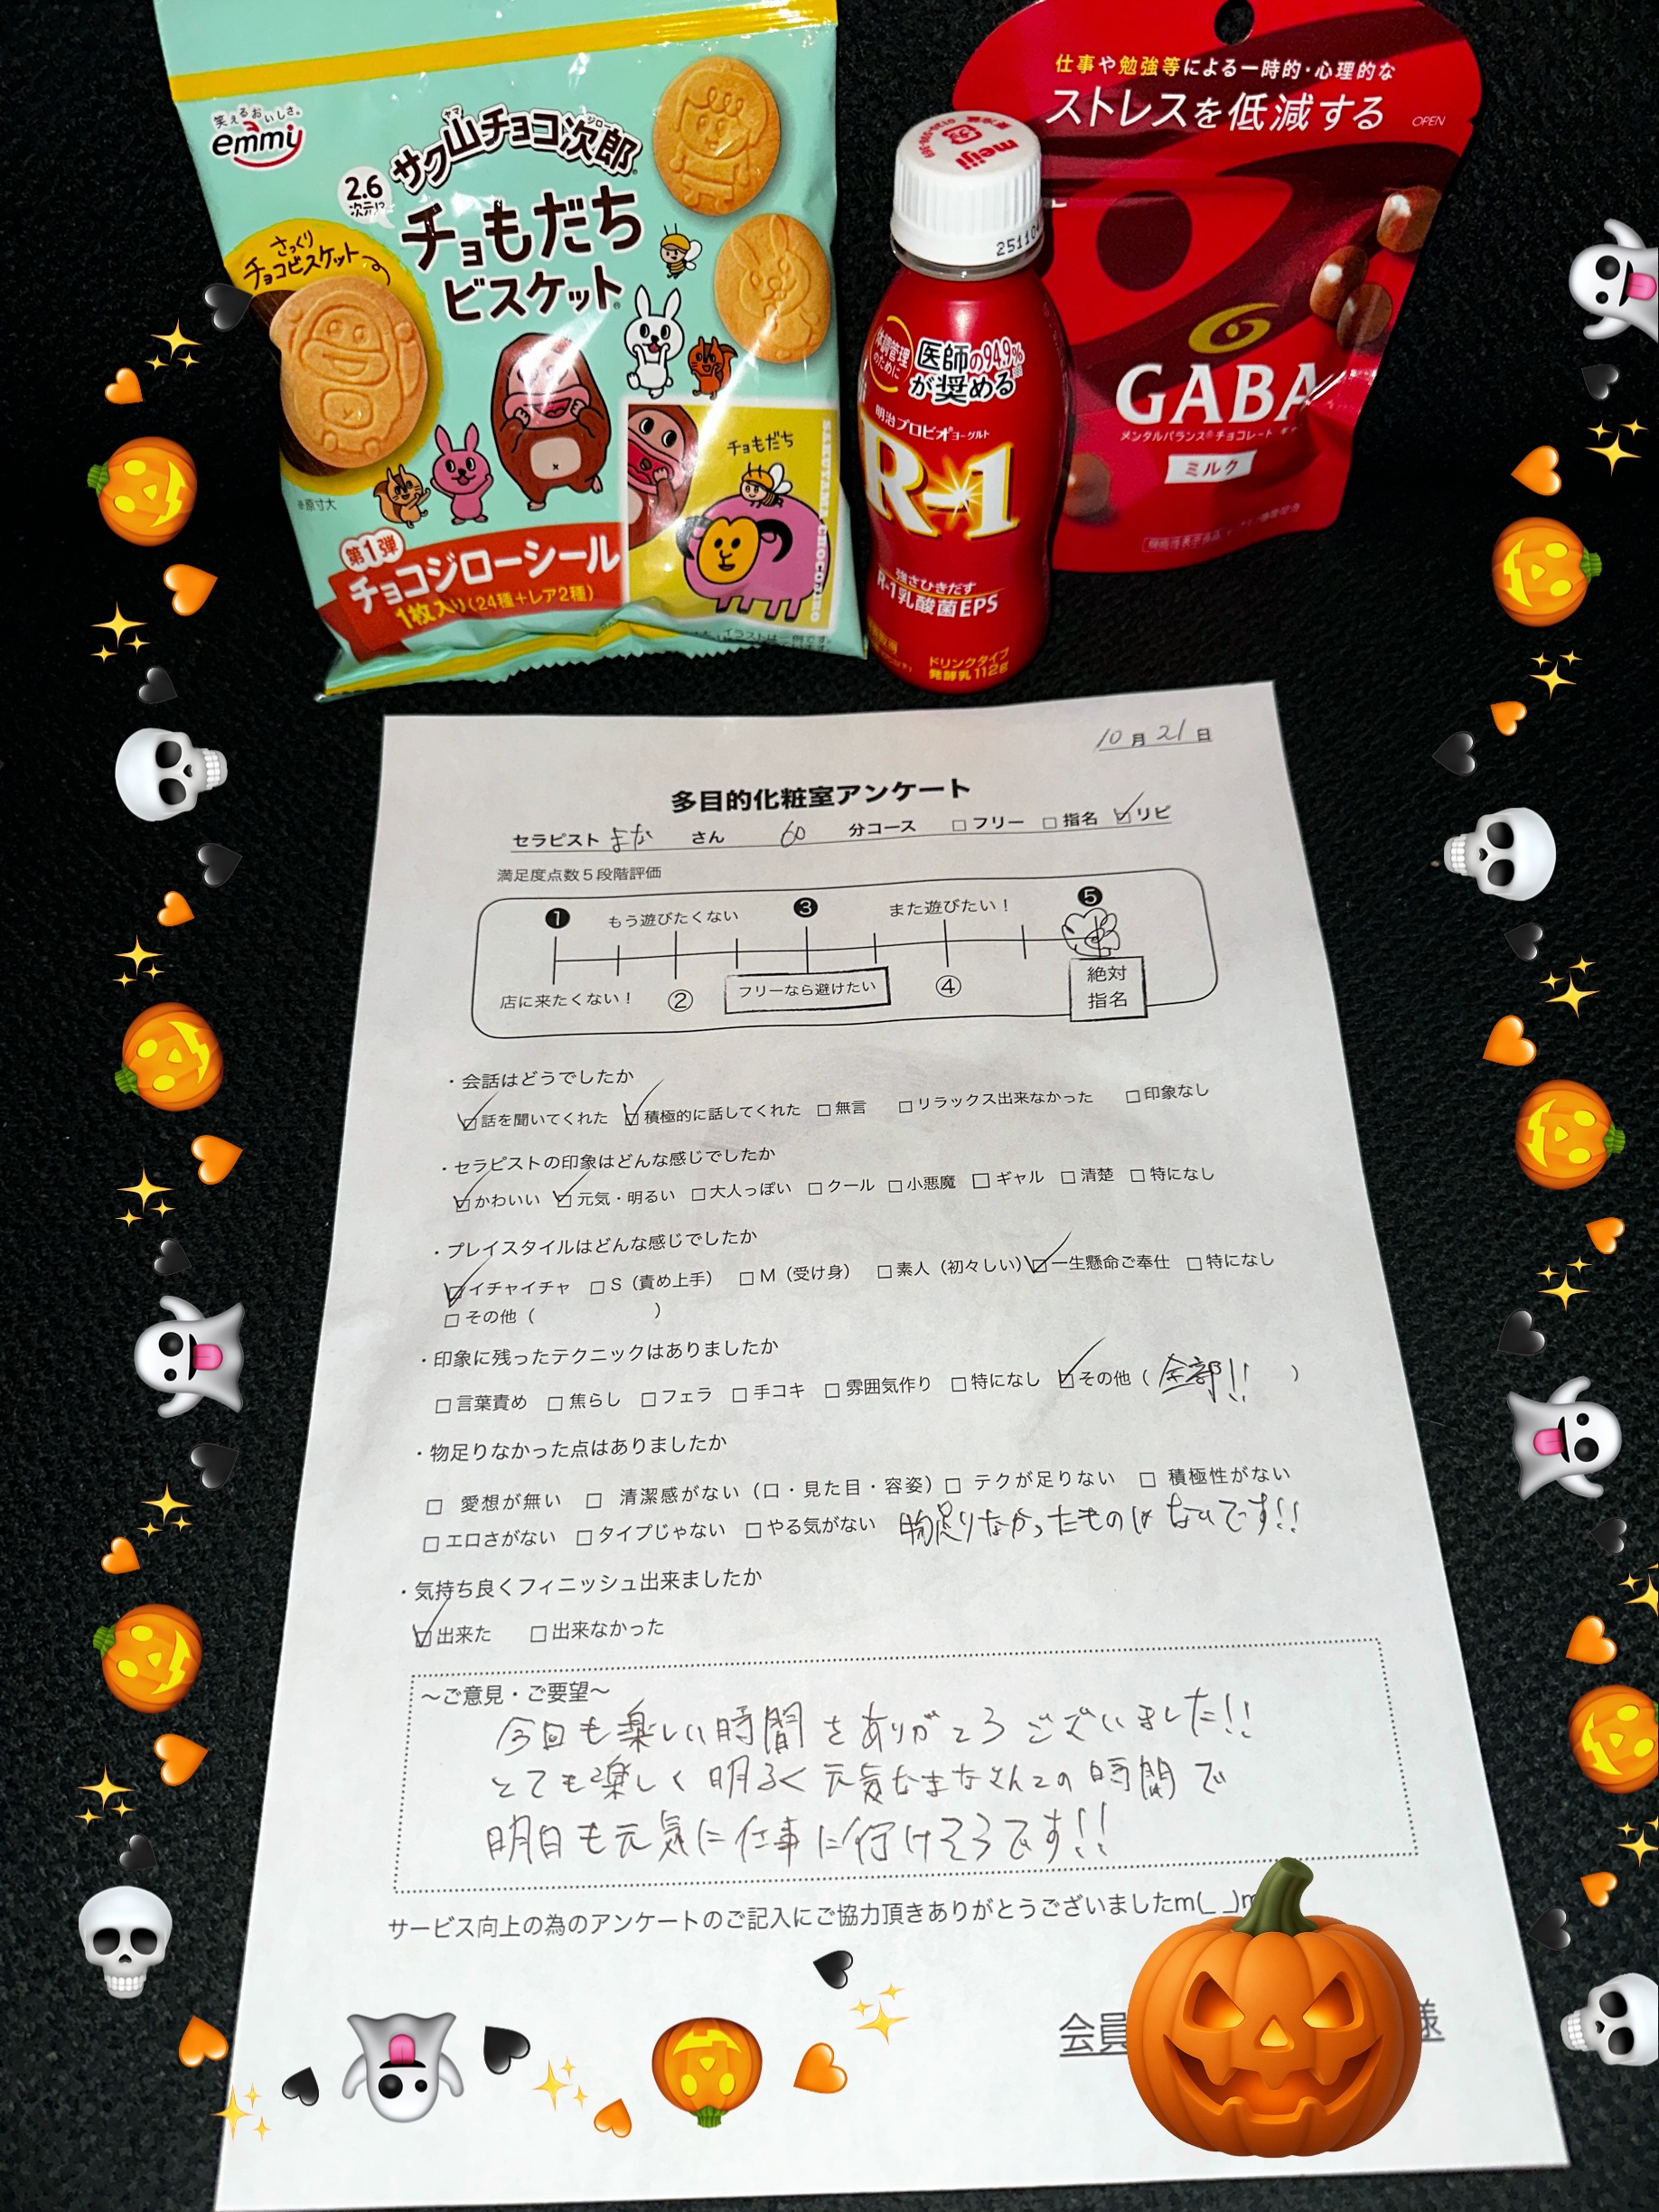 笑えるおいしさ。
emmy
サク山チョコ次郎
ヤマ
ジロー
2.6
次元!?
チョもだち
ビスケット
さっくり
チョコビスケット
※原寸大
チョもだち
SAKUYAMA CHOCOJIRO
第1弾
チョコジローシール
1枚入り(24種+レア2種)
meiji
25110
体調管理
のために
医師の94.9%
が奨める
明治プロビオヨーグルト
R-1
強さひきだす
R-1乳酸菌EPS
ドリンクタイプ
発酵乳 112g
仕事や勉強等による一時的・心理的な
ストレスを低減する
OPEN
GABA
メンタルバランス®チョコレート
ミルク
10月21日
多目的化粧室アンケート
セラピスト まな さん 60 分コース □フリー □指名 ☑リピ
満足度点数5段階評価
❶ もう遊びたくない ❸ また遊びたい! ❺
店に来たくない! ② フリーなら避けたい ④ 絶対
指名
・会話はどうでしたか
☑話を聞いてくれた ☑積極的に話してくれた □無言 □リラックス出来なかった □印象なし
・セラピストの印象はどんな感じでしたか
☑かわいい ☑元気・明るい □大人っぽい □クール □小悪魔 □ギャル □清楚 □特になし
・プレイスタイルはどんな感じでしたか
☑イチャイチャ □S(責め上手) □M(受け身) □素人(初々しい) ☑一生懸命ご奉仕 □特になし
□その他( )
・印象に残ったテクニックはありましたか
□言葉責め □焦らし □フェラ □手コキ □雰囲気作り □特になし ☑その他( 全部!! )
・物足りなかった点はありましたか
□ 愛想が無い □ 清潔感がない(口・見た目・容姿) □ テクが足りない □ 積極性がない
□エロさがない □タイプじゃない □やる気がない 物足りなかったものはないです!!
・気持ち良くフィニッシュ出来ましたか
☑出来た □出来なかった
〜ご意見・ご要望〜
今回も楽しい時間をありがとうございました!!
とても楽しく明るく元気なまなさんとの時間で
明日も元気に仕事に行けそうです!!
サービス向上の為のアンケートのご記入にご協力頂きありがとうございましたm(_ _)m
会員
様